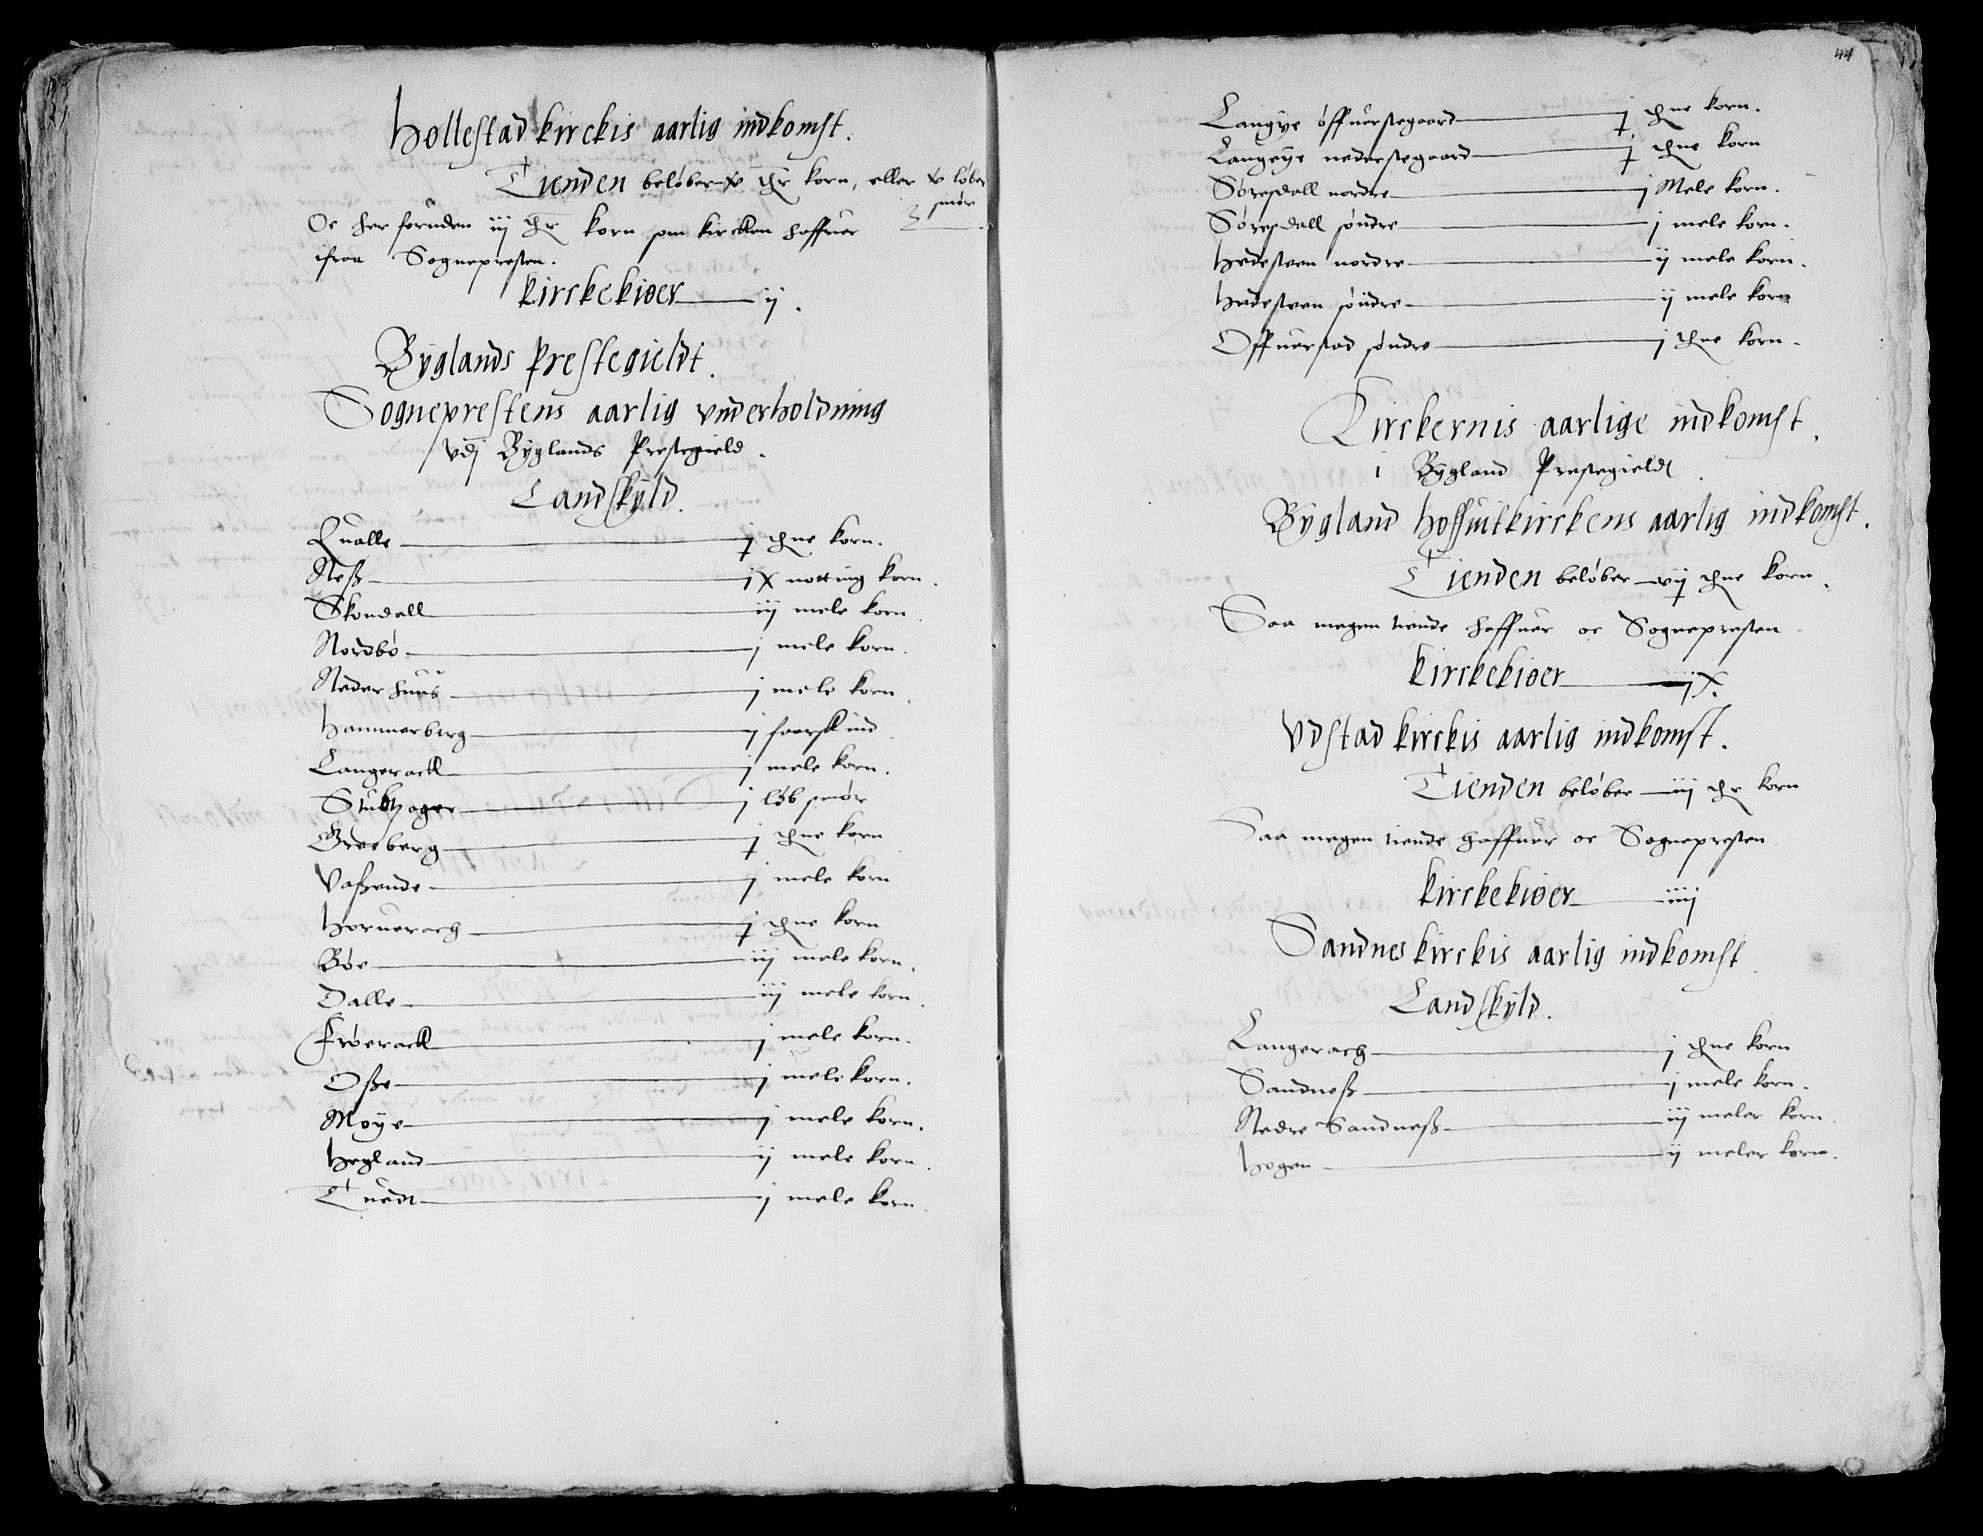 Høllestad kirckis aarlig indkomst.
Tienden beløber x chr korn, eller x løber
smør
Oc her foruden iij chr korn som kircken haffuer
ifraa Sognepresten.
Kirckekiøer ij.
Byglands Prestegieldt.
Sogneprestens aarlig vnderholdning
vdj Byglands Prestegield.
Landskyld.
Qualle j chne korn.
Neß ix notting korn.
Skondall iij mele korn
Nordbø j mele korn.
Neder huus j mele korn.
Hammerberg j faarskind
Langerack j mele korn.
Stubhager j løb smør
Greeberg j chne korn
Vaßende j mele korn
Horuerach j chne korn
Bøe iij mele korn.
Dalle iij mele korn.
Frøerack j mele korn.
Oße j mele korn.
Moye j mele korn.
Hegland ij mele korn.
Tuedt j mele korn.
44
Langeye øffuerstegaard j chne korn.
Langeye nederstegaard j chne korn
Søresdall nordre j Mele korn.
Søresdall søndre j mele korn.
Hedesteen nordre ij mele korn.
Hedesteen søndre ij mele korn
Offuerstad søndre j chne korn.
Kirckernis aarlige indkomst.
i Bygland Prestegieldt.
Bygland hoffuitkirckens aarlig indkomst.
Tienden beløber vij chne korn.
Saa megen tiende haffuer oc Sognepresten
Kirckekiøer ix.
Vdstad kirckis aarlig indkomst.
Tienden beløber iiij chr korn
Saa megen tiende haffuer oc Sognepresten
Kirckekiøer iiij
Sandnes kirckis aarlig indkomst
Landskyld.
Langerach j chne korn
Sandneß j mele korn.
Nedre Sandneß iij meler korn
Hogen ij meler korn.